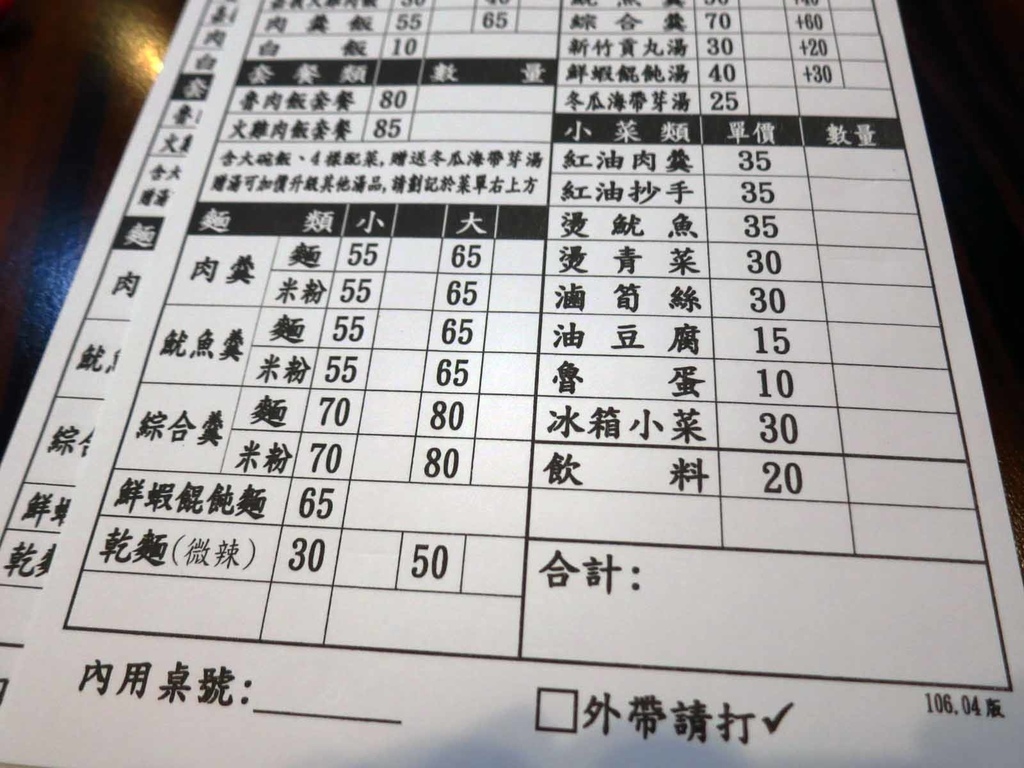 肉羹飯 55 65
白飯 10
套餐類 數量
魯肉飯套餐 80
火雞肉飯套餐 85
含大碗飯、4樣配菜,贈送冬瓜海帶芽湯
贈湯可加價升級其他湯品,請劃記於菜單右上方
麵類 小 大
肉羹 麵 55 65
米粉 55 65
魷魚羹 麵 55 65
米粉 55 65
綜合羹 麵 70 80
米粉 70 80
鮮蝦餛飩麵 65
乾麵(微辣) 30 50
綜合羹 70 +60
新竹貢丸湯 30 +20
鮮蝦餛飩湯 40 +30
冬瓜海帶芽湯 25
小菜類 單價 數量
紅油肉羹 35
紅油抄手 35
燙魷魚 35
燙青菜 30
滷筍絲 30
油豆腐 15
魯蛋 10
冰箱小菜 30
飲料 20
合計:
內用桌號:
外帶請打✓
106.04版